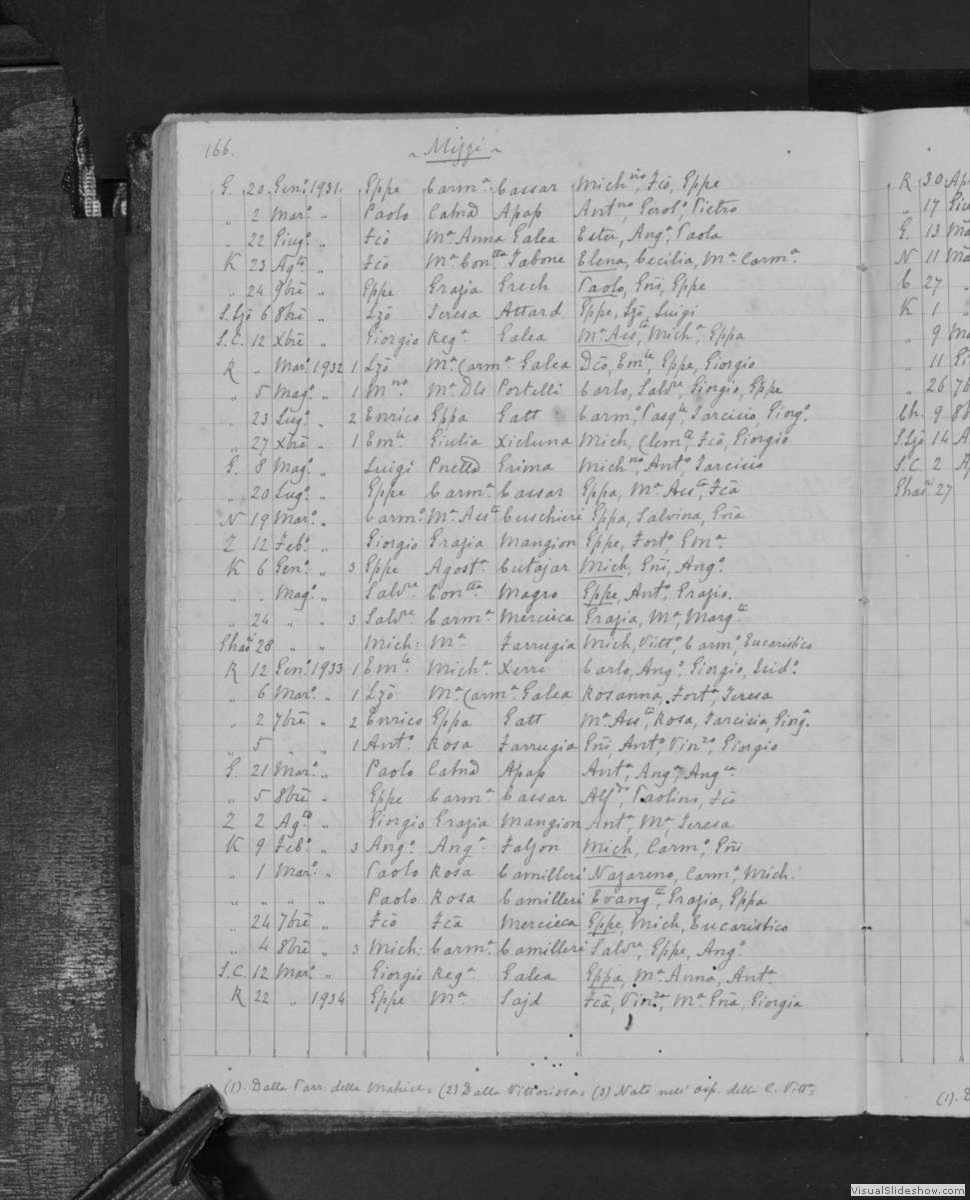 166.
~ Mizzi ~
G. 20 Gen.º 1931. Gppe Carmª Cassar Michno, Fcō, Gppe
„ 2 Mar.º „ Paolo Catnā Apap Antno, Gerolº, Pietro
„ 22 Giugº „ Fcō Mª Anna Galea Ester, Angª, Paola
K 23 Agto „ Fcō Mª Contta Tabone Elena, Cecilia, Mª Carmª
„ 24 9brē „ Gppe Grazia Grech Paolo, Gñi, Gppe
S.Lzō 6 8brē „ Lzō Teresa Attard Gppe, Lzō, Luigi
S.C. 12 Xbrē „ Giorgio Regª Galea Mª Assta, Michª, Gppa
R „ Marº 1932 1 Lzō Mª Carmª Galea Dcō, Emle, Gppe, Giorgio
„ 5 Magº „ 1 Mno Mª Dls Portelli Carlo, Salvre, Giorgio, Gppe
„ 23 Lugº „ 2 Enrico Gppa Gatt Carmº, Pasqle, Tarcisio, Giorgº
„ 27 Xbrē „ 1 Emle Giulia Xicluna Mich, Clemte, Fcō, Giorgio
G. 8 Magº „ Luigi Grima Michno, Antº, Tarcisio
„ 20 Lugº „ Gppe Carmª Cassar Gppa, Mª Assta, Fcā
N 19 Marº „ Carmº Mª Assta Cuschieri Gppa, Salvina, Gñā
Z 12 Febº „ Giorgio Grazia Mangion Gppe, Fortº, Emª
K 6 Genº „ 3 Gppe Agostª Cutajar Mich, Gñi, Angº
„ „ Magº „ Salvre Contta Magro Gppe, Antº, Grazio.
„ 24 „ „ 3 Salvre Carmª Mercieca Grazia, Mª, Margta
Ghasri 28 „ „ Mich: Mª Farrugia Mich, Vittº, Carmº, Eucaristico
R 12 Genº 1933 1 Emle Michª Xerri Carlo, Angº, Giorgio, Isidº
„ 6 Marº „ 1 Lzō Mª Carmª Galea Rosanna, Fortª, Teresa
„ 2 7brē „ 2 Enrico Gppa Gatt Mª Assta, Rosa, Tarcisia, Giorgª
„ 5 „ „ 1 Antº Rosa Farrugia Gñi, Antº, Vinzo, Giorgio
G. 21 Marº „ Paolo Catnā Apap Antª, Angª, Angca
„ 5 8brē „ Gppe Carmª Cassar Alfdo, Paolino, Fcō
Z 2 Agto „ Giorgio Grazia Mangion Antª, Mª, Teresa
K 9 Febº „ 3 Angº Angª Falzon Mich, Carmº, Gñi
„ 1 Marº „ Paolo Rosa Camilleri Nazareno, Carmº, Mich.
„ „ „ „ Paolo Rosa Camilleri Evangta, Grazia, Gppa
„ 24 7brē „ Fcō Fcā Mercieca Gppe, Mich, Eucaristico
„ 4 8brē „ 3 Mich: Carmª Camilleri Salvre, Gppe, Angº
S.C. 12 Marº „ Giorgio Regª Galea Gppa, Mª Anna, Antª
R 22 „ 1934 Gppe Mª Sajd Fcā, Vinza, Mª Gñā, Giorgia
(1). Dalla Parr. della Matrice = (2) Dalla Vittoriosa = (3) Nato nell' osp. della C. Vittª =
R 30 Ap
„ 17 Giu
G. 13 Ma
N 11 Ma
C 27 „
K 1 „
„ 9 Ma
„ 11 Gi
„ 26 7b
Ch. 9 8b
S.Lzō 14 A
S.C. 2 A
Ghasri 27
(1). D
VisualSlideshow.com